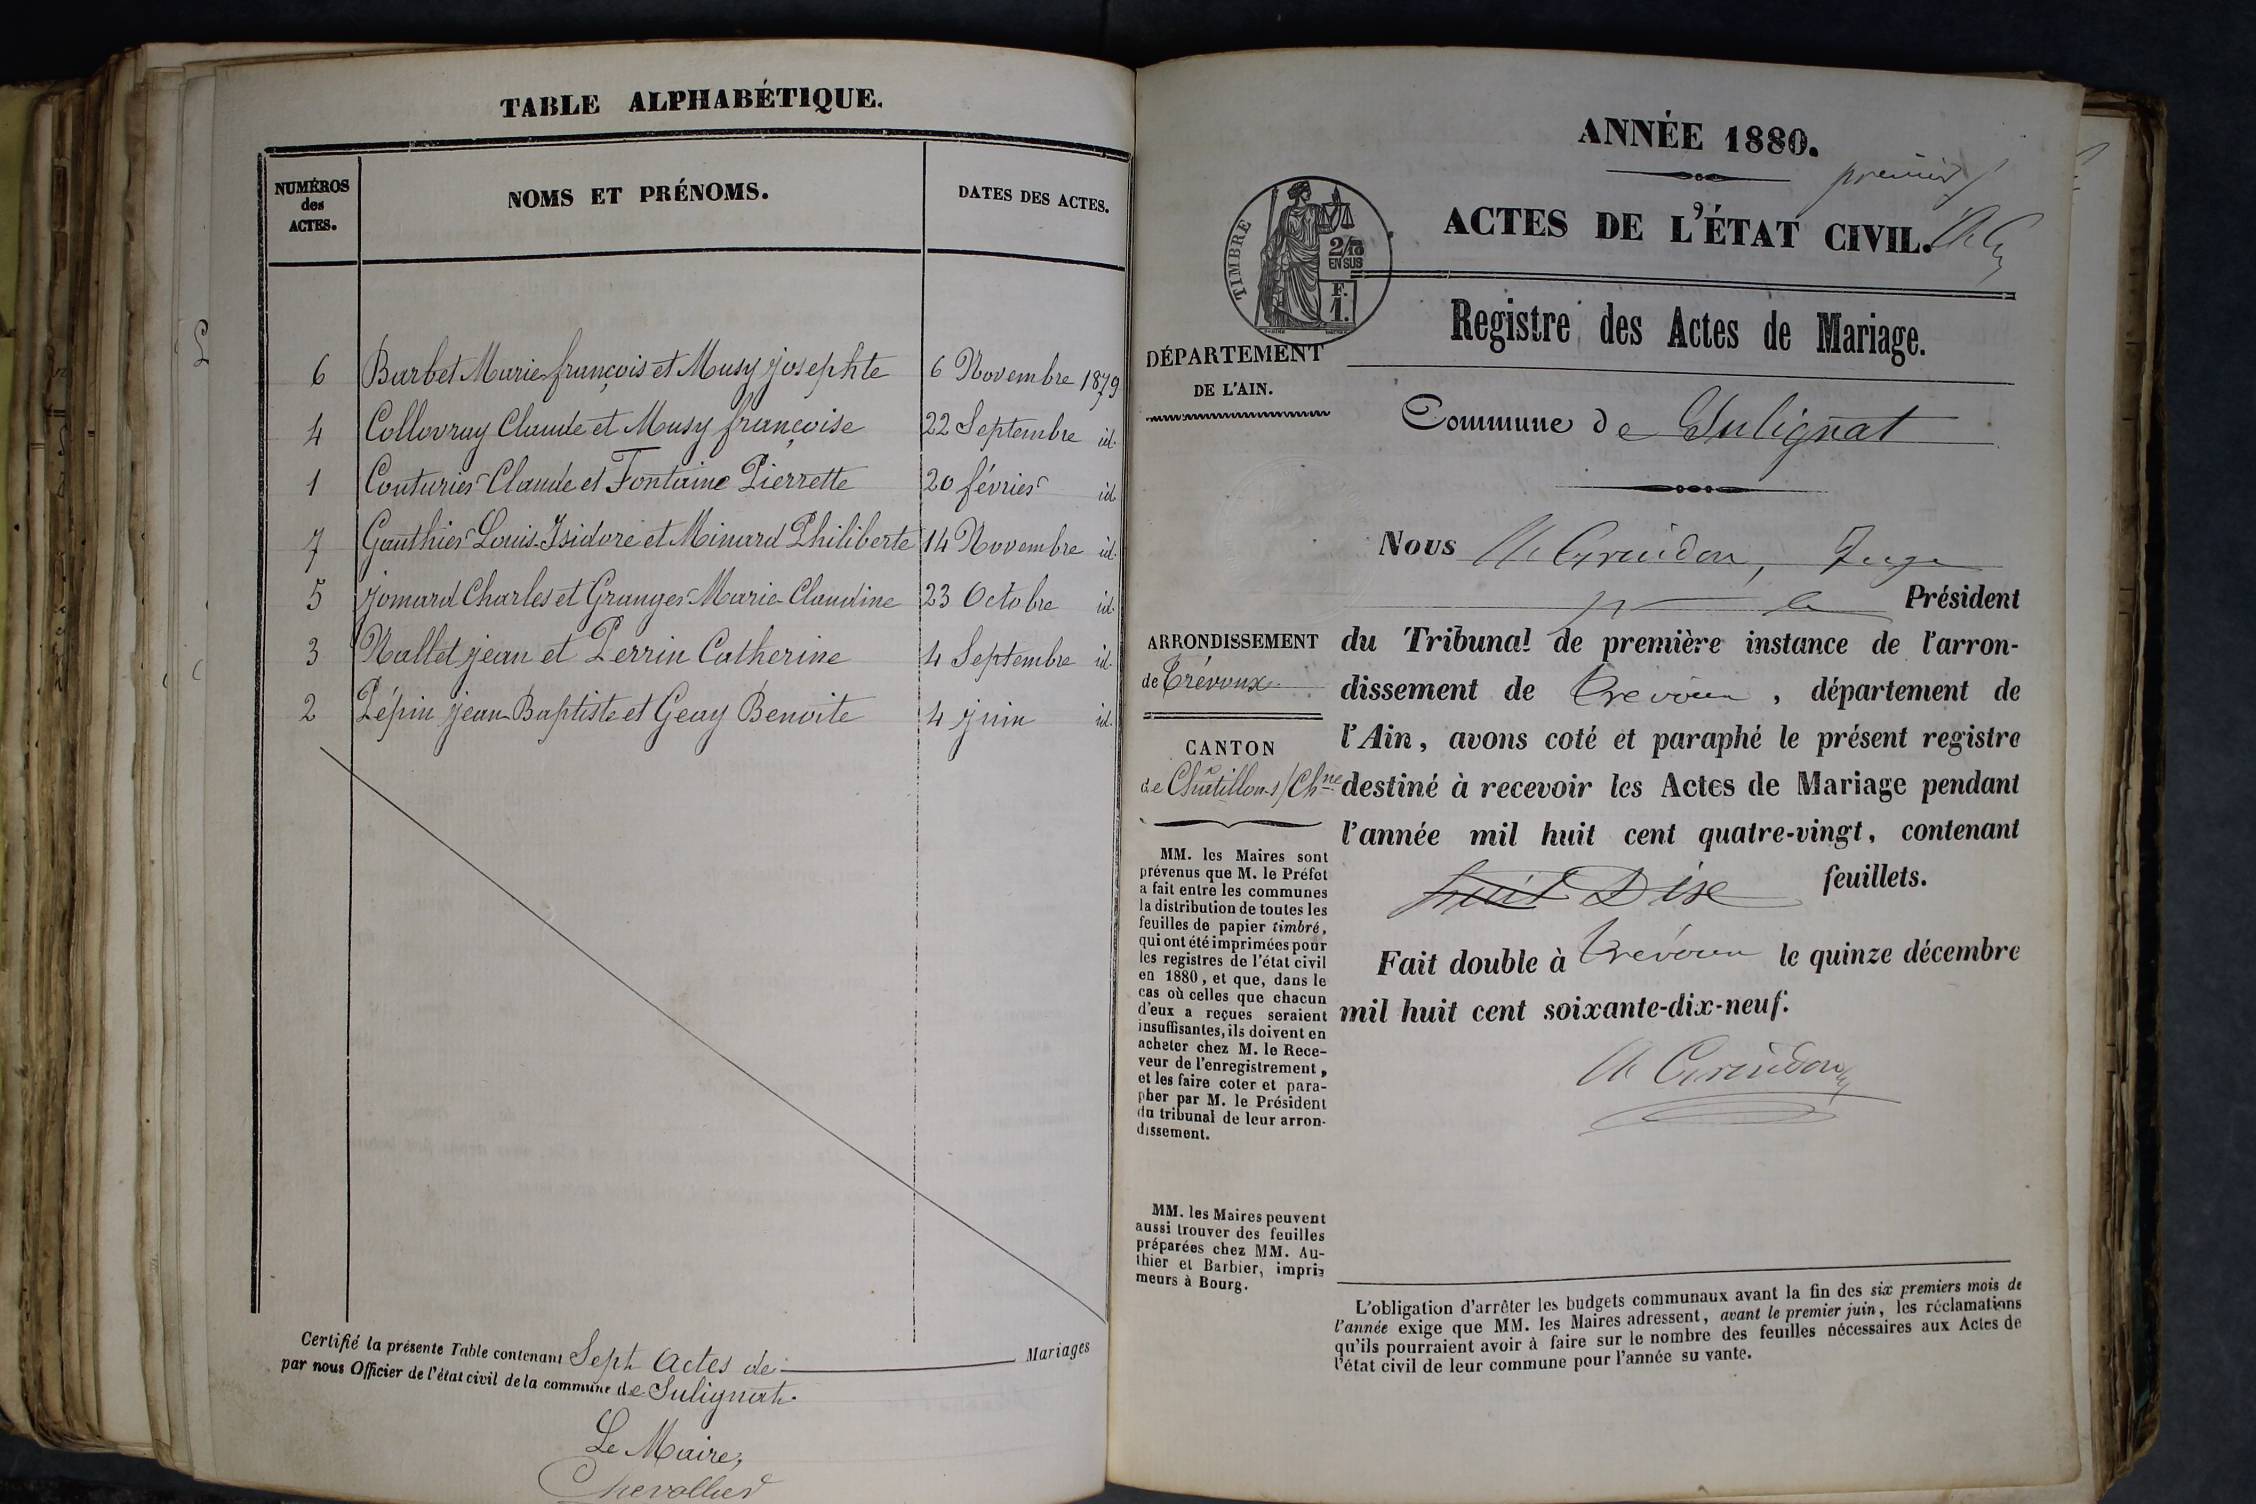 TABLE ALPHABÉTIQUE.
NUMÉROS des ACTES.
NOMS ET PRÉNOMS.
DATES DES ACTES.
6 Barbet Marie françois et Musy josephte 6 Novembre 1879
4 Collovray Claude et Musy françoise 22 Septembre id.
1 Couturier Claude et Fontaine Pierrette 20 février id.
7 Gauthier Louis-Isidore et Minard Philiberte 14 Novembre id.
5 jomard Charles et Granger Marie-Claudine 23 Octobre id.
3 Nallet jean et Perrin Catherine 4 Septembre id.
2 Pépin jean-Baptiste et Geay Benoite 4 juin id.
Certifié la présente Table contenant Sept Actes de Mariages
par nous Officier de l'état civil de la commune de Sulignat.
Le Maire,
Chevallier
ANNÉE 1880.
premier
ACTES DE L'ÉTAT CIVIL.
TIMBRE
2/10
EN SUS
F.
1.
Registre des Actes de Mariage.
DÉPARTEMENT
DE L'AIN.
Commune de Sulignat
Nous Guidon, Juge
Président
ARRONDISSEMENT
de Trévoux
CANTON
de Châtillon s/Chne
MM. les Maires sont
prévenus que M. le Préfet
a fait entre les communes
la distribution de toutes les
feuilles de papier timbré,
qui ont été imprimées pour
les registres de l'état civil
en 1880, et que, dans le
cas où celles que chacun
d'eux a reçues seraient
insuffisantes, ils doivent en
acheter chez M. le Rece-
veur de l'enregistrement,
et les faire coter et para-
pher par M. le Président
du tribunal de leur arron-
dissement.
MM. les Maires peuvent
aussi trouver des feuilles
préparées chez MM. Au-
thier et Barbier, impri-
meurs à Bourg.
du Tribunal de première instance de l'arron-
dissement de Trevoux, département de
l'Ain, avons coté et paraphé le présent registre
destiné à recevoir les Actes de Mariage pendant
l'année mil huit cent quatre-vingt, contenant
huit Dix feuillets.
Fait double à Trévoux le quinze décembre
mil huit cent soixante-dix-neuf.
L'obligation d'arrêter les budgets communaux avant la fin des six premiers mois de
l'année exige que MM. les Maires adressent, avant le premier juin, les réclamations
qu'ils pourraient avoir à faire sur le nombre des feuilles nécessaires aux Actes de
l'état civil de leur commune pour l'année su vante.